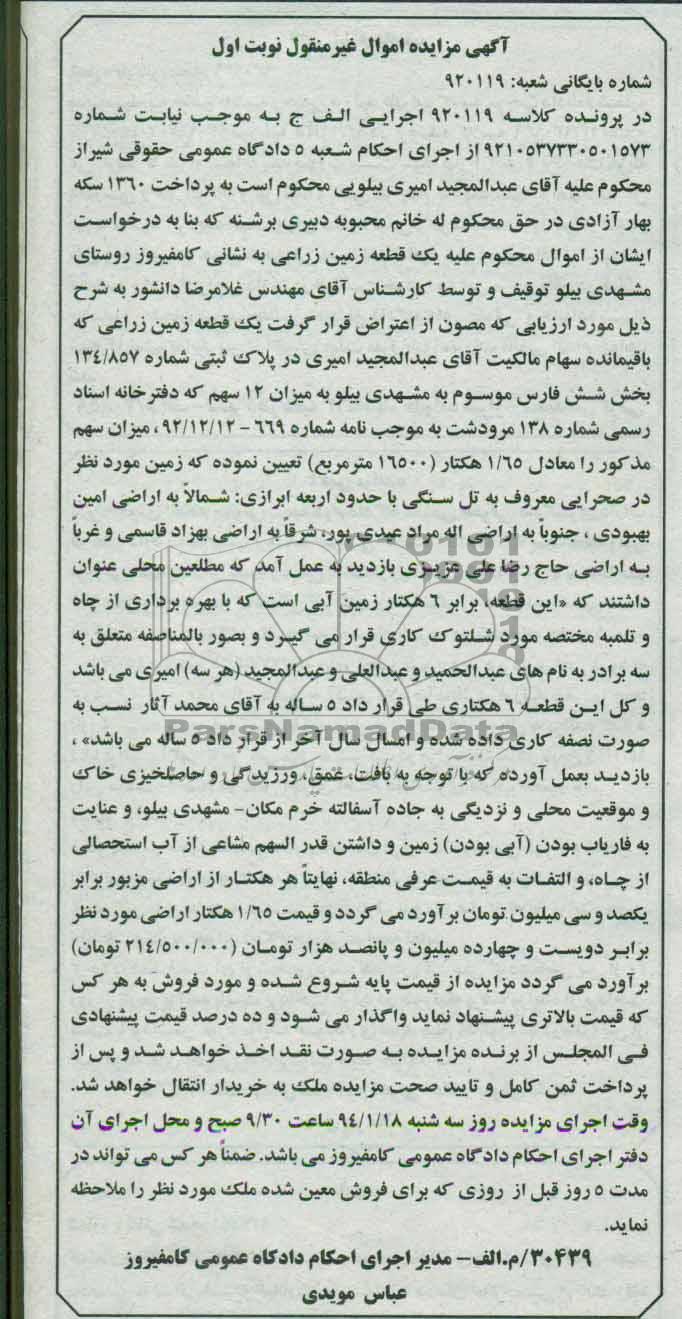 آگهی مزایده اموال غیرمنقول نوبت اول
شماره بایگانی شعبه: ۹۲۰۱۱۹
در پرونده کلاسه ۹۲۰۱۱۹ اجرایی الف ج به موجب نیابت شماره
۹۲۱۰۵۳۷۳۳۰۵۰۱۵۷۳ از اجرای احکام شعبه ۵ دادگاه عمومی حقوقی شیراز
محکوم علیه آقای عبدالمجید امیری بیلویی محکوم است به پرداخت ۱۳۶۰ سکه
بهار آزادی در حق محکوم له خانم محبوبه دبیری برشنه که بنا به درخواست
ایشان از اموال محکوم علیه یک قطعه زمین زراعی به نشانی کامفیروز روستای
مشهدی بیلو توقیف و توسط کارشناس آقای مهندس غلامرضا دانشور به شرح
ذیل مورد ارزیابی که مصون از اعتراض قرار گرفت یک قطعه زمین زراعی که
باقیمانده سهام مالکیت آقای عبدالمجید امیری در پلاک ثبتی شماره ۱۳۴/۸۵۷
بخش شش فارس موسوم به مشهدی بیلو به میزان ۱۲ سهم که دفترخانه اسناد
رسمی شماره ۱۳۸ مرودشت به موجب نامه شماره ۶۶۹ - ۹۲/۱۲/۱۲ ، میزان سهم
مذکور را معادل ۱/۶۵ هکتار (۱۶۵۰۰ مترمربع) تعیین نموده که زمین مورد نظر
در صحرایی معروف به تل سنگی با حدود اربعه ابرازی: شمالاً به اراضی امین
بهبودی ، جنوباً به اراضی اله مراد عیدی پور، شرقاً به اراضی بهزاد قاسمی و غرباً
به اراضی حاج رضا علی عزیزی بازدید به عمل آمد که مطلعین محلی عنوان
داشتند که «این قطعه، برابر ۶ هکتار زمین آبی است که با بهره برداری از چاه
و تلمبه مختصه مورد شلتوک کاری قرار می گیرد و بصور بالمناصفه متعلق به
سه برادر به نام های عبدالحمید و عبدالعلی و عبدالمجید (هر سه) امیری می باشد
و کل این قطعه ۶ هکتاری طی قرار داد ۵ ساله به آقای محمد آثار نسب به
صورت نصفه کاری داده شده و امسال سال آخر از قرار داد ۵ ساله می باشد» ،
بازدید بعمل آورده که با توجه به بافت، عمق، ورزیدگی و حاصلخیزی خاک
و موقعیت محلی و نزدیگی به جاده آسفالته خرم مکان- مشهدی بیلو، و عنایت
به فاریاب بودن (آبی بودن) زمین و داشتن قدر السهم مشاعی از آب استحصالی
از چاه، و التفات به قیمت عرفی منطقه، نهایتاً هر هکتار از اراضی مزبور برابر
یکصد و سی میلیون تومان برآورد می گردد و قیمت ۱/۶۵ هکتار اراضی مورد نظر
برابر دویست و چهارده میلیون و پانصد هزار تومان (۲۱۴/۵۰۰/۰۰۰ تومان)
برآورد می گردد مزایده از قیمت پایه شروع شده و مورد فروش به هر کس
که قیمت بالاتری پیشنهاد نماید واگذار می شود و ده درصد قیمت پیشنهادی
فی المجلس از برنده مزایده به صورت نقد اخذ خواهد شد و پس از
پرداخت ثمن کامل و تایید صحت مزایده ملک به خریدار انتقال خواهد شد.
وقت اجرای مزایده روز سه شنبه ۹۴/۱/۱۸ ساعت ۹/۳۰ صبح و محل اجرای آن
دفتر اجرای احکام دادگاه عمومی کامفیروز می باشد. ضمناً هر کس می تواند در
مدت ۵ روز قبل از روزی که برای فروش معین شده ملک مورد نظر را ملاحظه
نماید.
۳۰۴۳۹/م.الف- مدیر اجرای احکام دادگاه عمومی کامفیروز
عباس مویدی
ParsNamadData